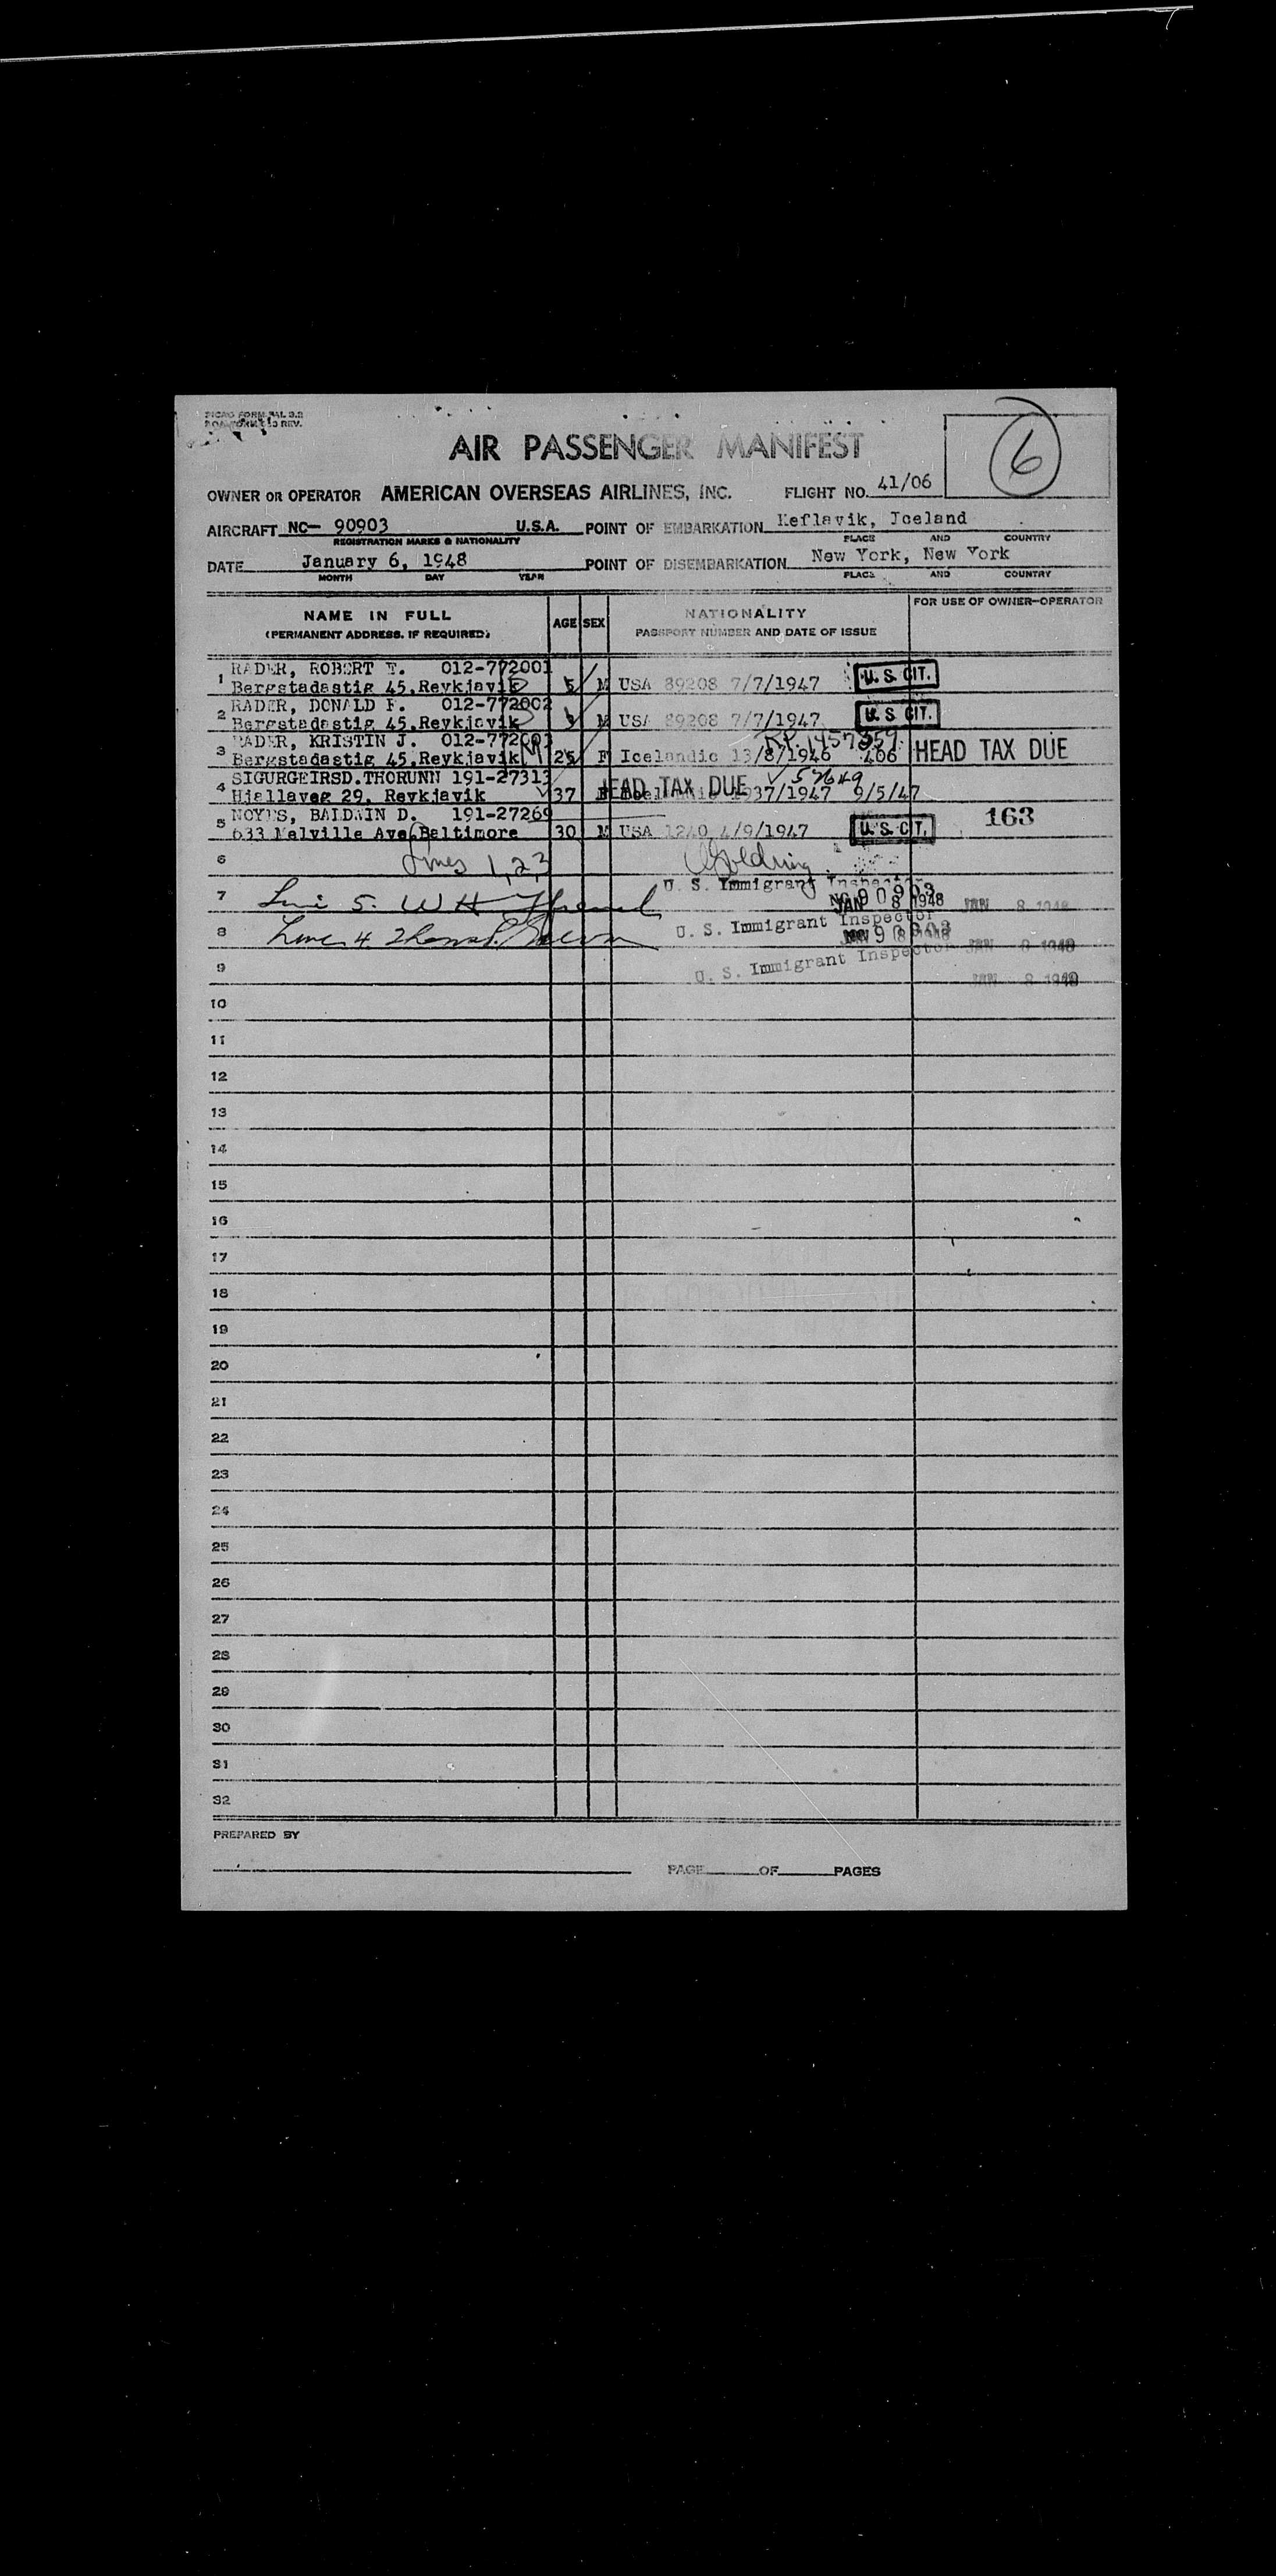 AIR PASSENGER MANIFEST
6
OWNER OR OPERATOR AMERICAN OVERSEAS AIRLINES, INC. FLIGHT NO. 41/06
AIRCRAFT NC- 90903 U.S.A. POINT OF EMBARKATION Keflavik, Iceland
REGISTRATION MARKS & NATIONALITY PLACE AND COUNTRY
DATE January 6, 1948 POINT OF DISEMBARKATION New York, New York
MONTH DAY YEAR PLACE AND COUNTRY
NAME IN FULL AGE SEX NATIONALITY FOR USE OF OWNER-OPERATOR
(PERMANENT ADDRESS, IF REQUIRED) PASSPORT NUMBER AND DATE OF ISSUE
1 RADER, ROBERT 012-772001
Bergstadastig 45,Reykjavik 5 M USA 89208 7/7/1947 U.S. CIT.
2 RADER, DONALD F. 012-772002
Bergstadastig 45,Reykjavik M USA 89208 7/7/1947 U.S CIT.
3 RADER, KRISTIN J. 012-772003 RP 1457359
Bergstadastig 45,Reykjavik 25 F Icelandic 13/8/1946 406 HEAD TAX DUE
4 SIGURGEIRSD.THORUNN 191-27313 HEAD TAX DUE
Hjallaveg 29, Reykjavik 37 F 1937/1947 9/5/47
5 NOYES, BALDWIN D. 191-27269 163
633 Melville Ave Baltimore 30 M USA 1240 4/9/1947 U.S. CIT.
6 Lines 1,2,3 Golding
7 Line 5. W H U. S. Immigrant Inspector NC 90903 JAN 8 1948 JAN 8 1948
8 Line 4 U. S. Immigrant Inspector JAN 8 1948
9 U. S. Immigrant Inspector JAN 8 1948
10
11
12
13
14
15
16
17
18
19
20
21
22
23
24
25
26
27
28
29
30
31
32
PREPARED BY
PAGE OF PAGES